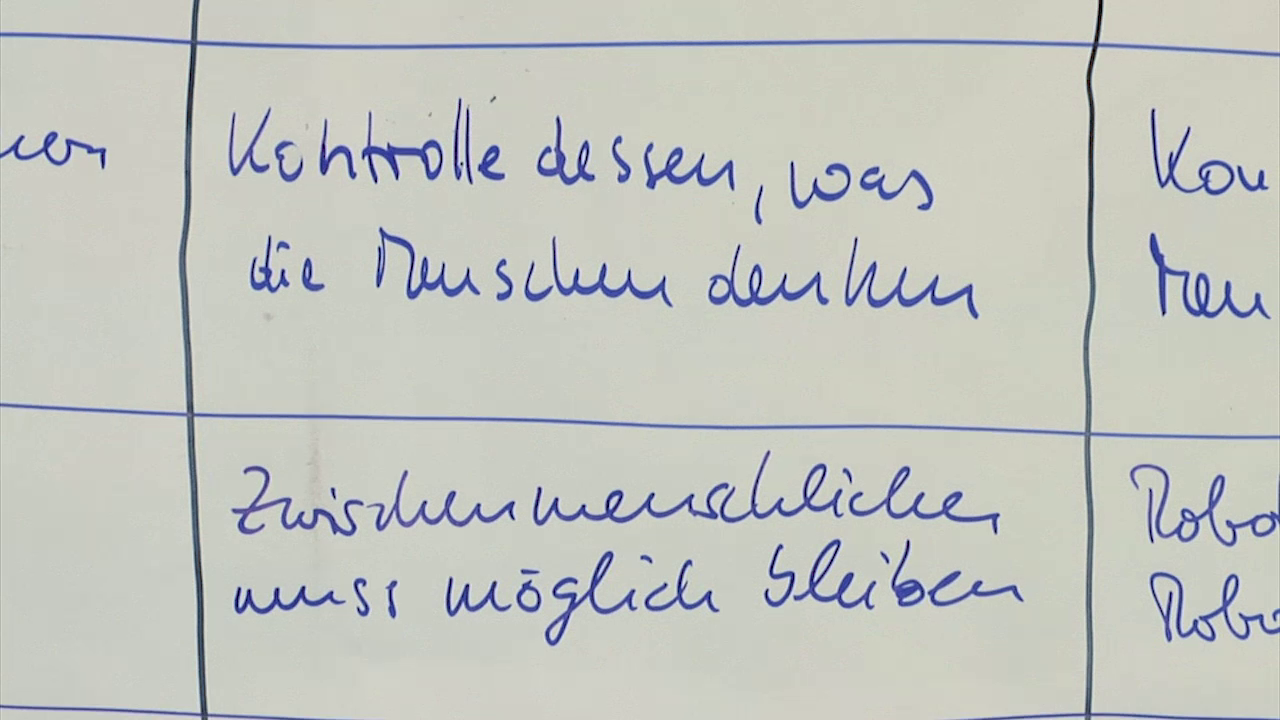 Kontrolle dessen, was
die Menschen denken
Kon
Men
Zwischenmenschliches
muss möglich bleiben
Robo
Robo